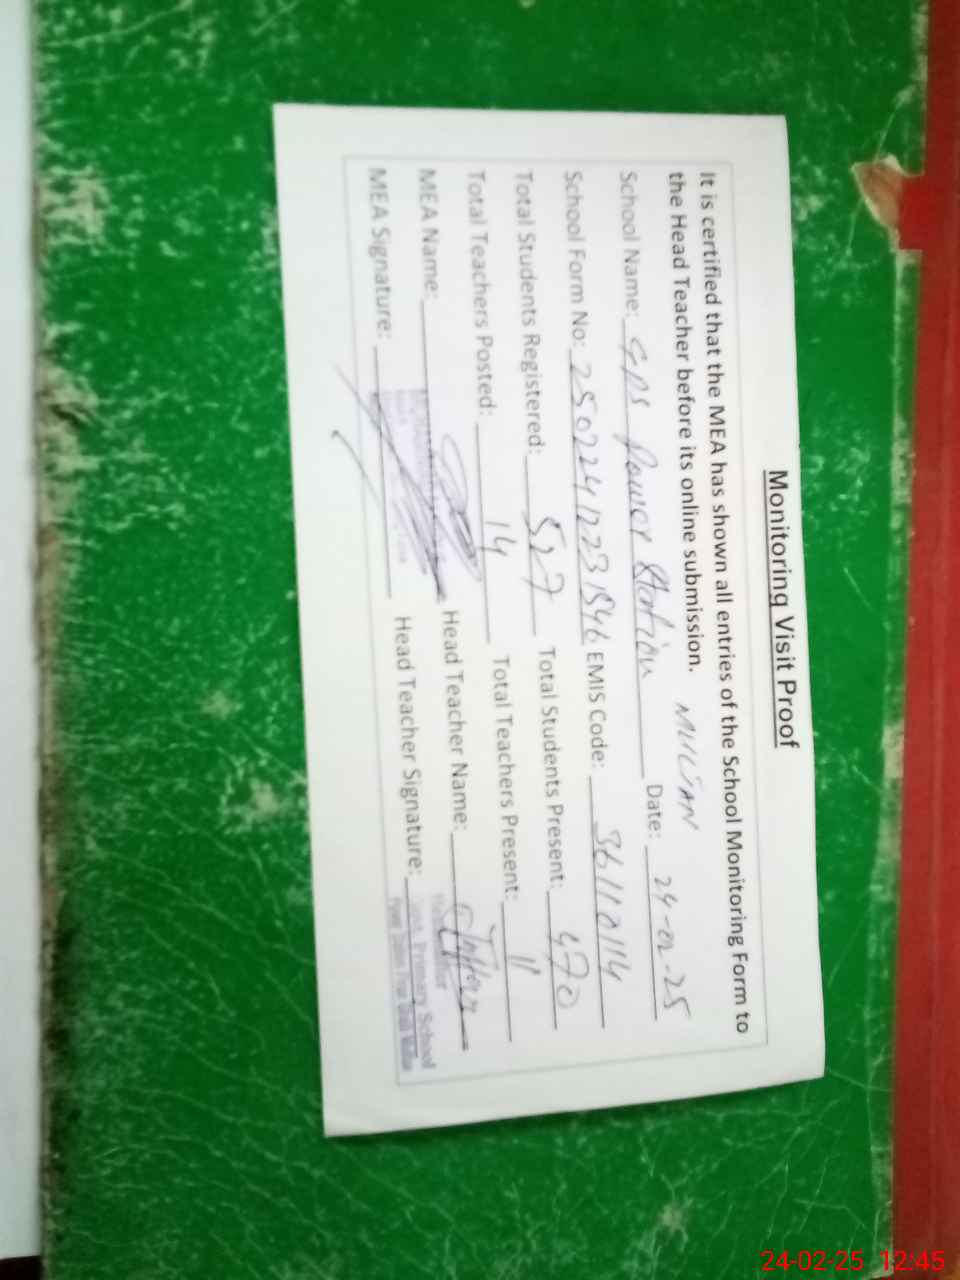 Monitoring Visit Proof
It is certified that the MEA has shown all entries of the School Monitoring Form to
the Head Teacher before its online submission.
School Name: GPS Power Station MULTAN Date: 24-02-25
School Form No: 25022412231546 EMIS Code: 36110114
Total Students Registered: 527 Total Students Present: 470
Total Teachers Posted: 14 Total Teachers Present: 11
MEA Name: Head Teacher Name:
MEA Signature: Head Teacher Signature:
Govt. Primary School
24-02-25 12:45